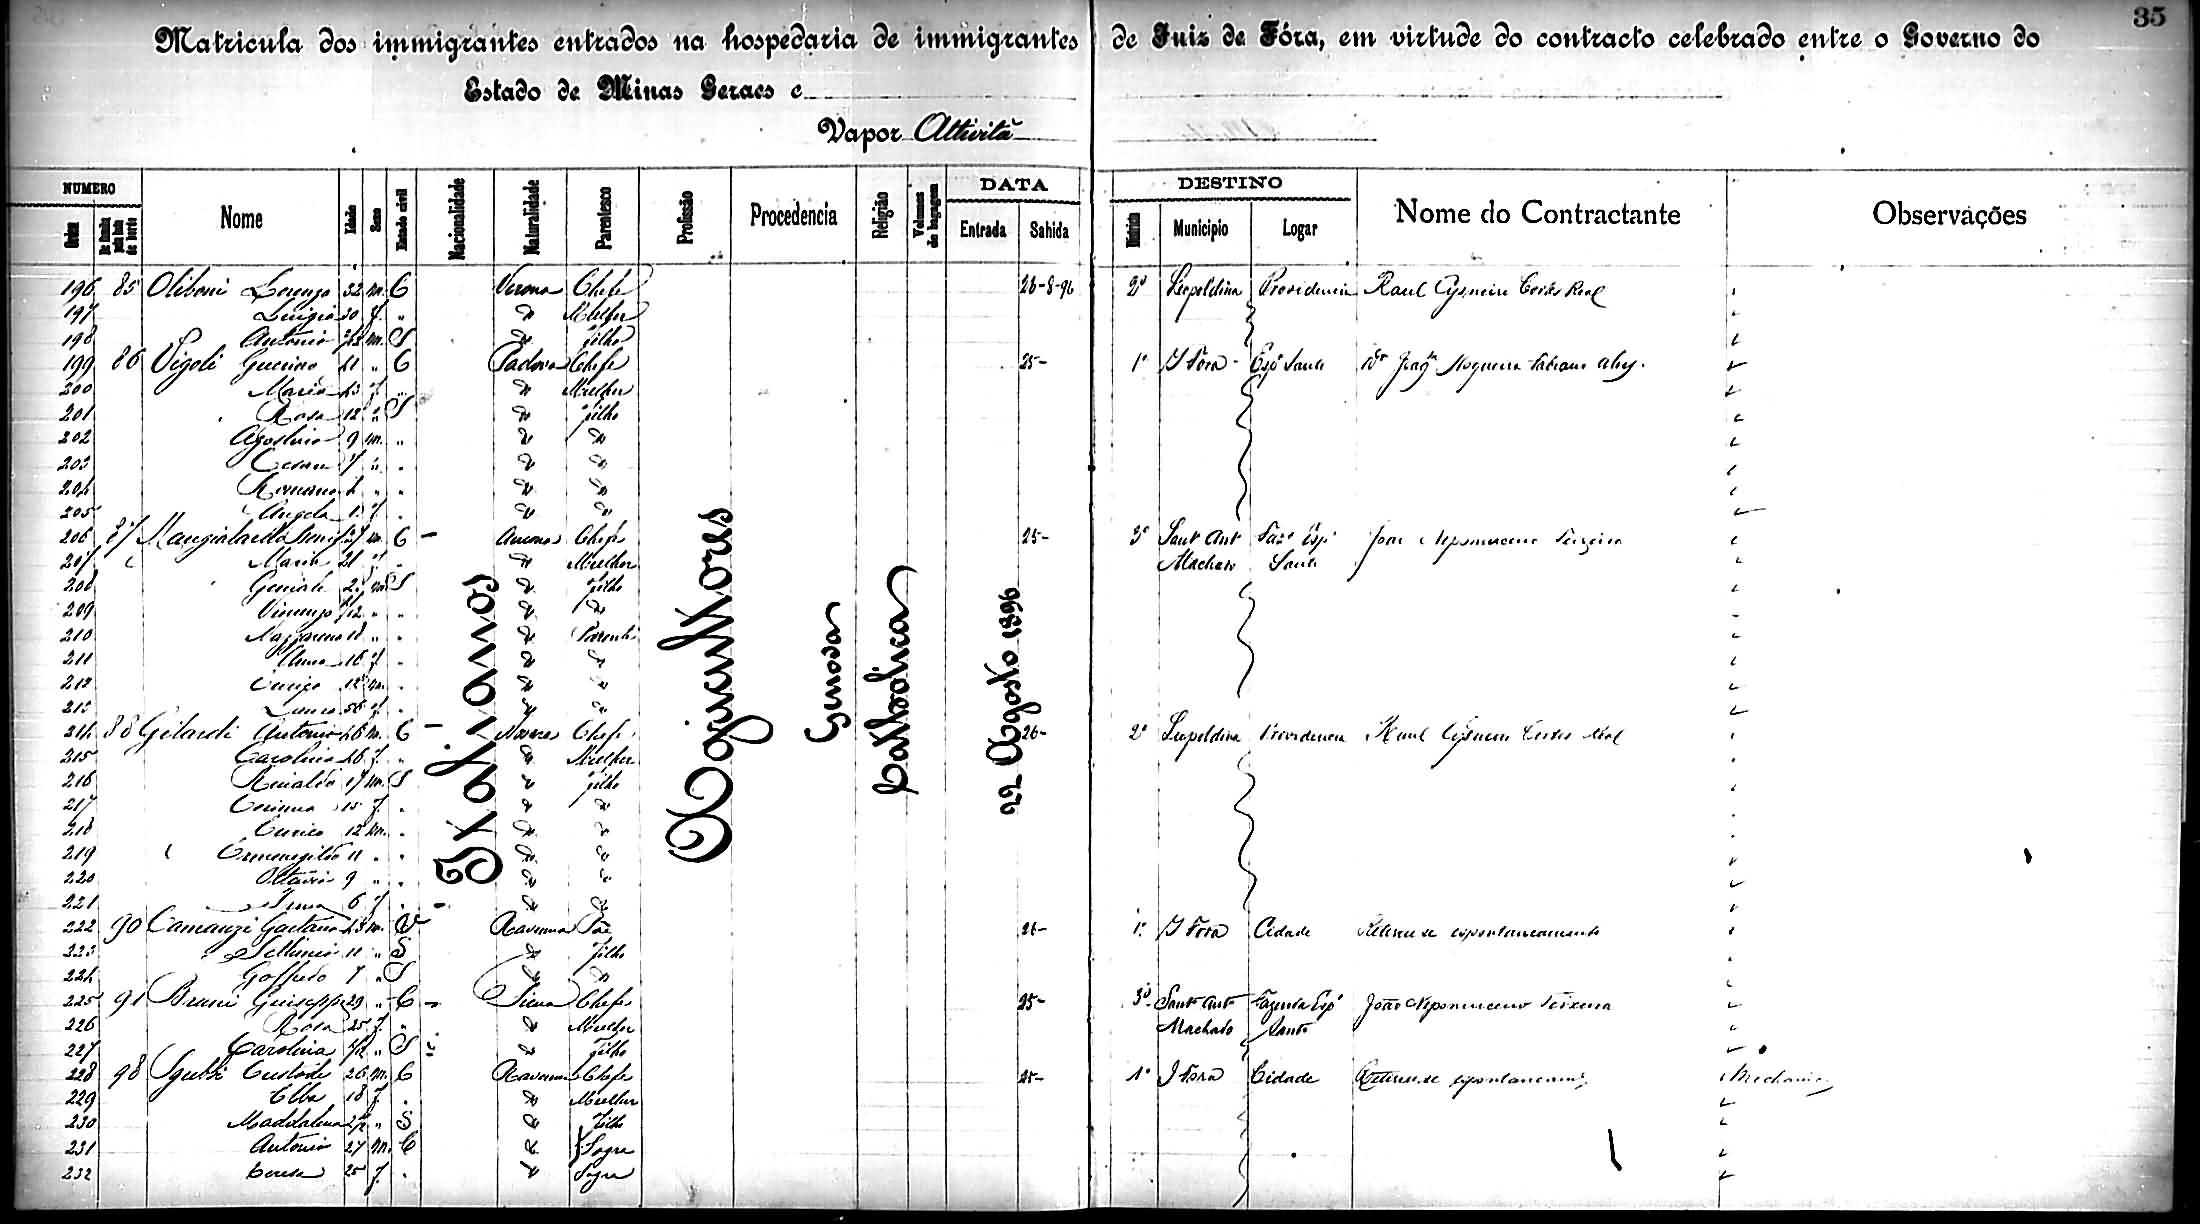 35
Matricula dos immigrantes entrados na hospedaria de immigrantes de Juiz de Fóra, em virtude do contracto celebrado entre o Governo do
Estado de Minas Geraes e
Vapor Attivitá
NUMERO DATA DESTINO
Ordem Nome Idade Sexo Estado civil Nacionalidade Naturalidade Parentesco Profissão Procedencia Religião Volumes de bagagem Entrada Sahida Districto Municipio Logar Nome do Contractante Observações
Italianos Agricultores Genova Catholica 22 Agosto 1896
196 85 Oliboni Lorenzo 32 m. C Verona Chefe 26-8-96 2º Leopoldina Providencia Raul Cysneiro Cortes Real
197 Luigia 30 f. " " Mulher
198 Antonio m. S " filho
199 86 Vigoli Guerino 41 " C Padova Chefe 25- 1º J Fora - Espº Santo Dr Joaqm Nogueira
200 Maria 43 f. " " Mulher
201 Rosa 12 " S " filho
202 Agostino 9 m. " " "
203 Cesare 7 " . " "
204 Romano 4 " . " "
205 Angela f. . " "
206 87 27 m. C - Ancona Chefe 25- 3º Santº Antº Fazª Espº João Nepomuceno Teixeira
207 Maria 21 f. " Mulher Machado Santo
208 Geniale m. S " filho
209 Vincenzo " . " "
210 Nazzareno 18 " . " Parente
211 Anna 16 f. . " "
212 Enrico 12 m. . " "
213 56 f. . " "
214 88 Gilardi Antonio 46 m. C - Chefe 26- 2º Leopoldina Providencia Raul Cysneiro Cortes Real
215 Carolina 46 f. . " Mulher
216 Rinaldo 17 m. S " filho
217 Corinna 15 f. . " "
218 Enrico 12 m. . " "
219 Ermenegildo 11 " . " "
220 Ottavio 9 " . " "
221 Irma 6 f. . " "
222 90 Camanzi Gaetano 43 m. V Ravenna Pae 26- 1º J Fora Cidade Retirou-se espontaneamente
223 Settimio 11 " S " filho
224 Goffredo 7 " S " "
225 91 Bruni Guiseppe 29 " C - Siena Chefe 25- 3º Santº Antº Fazenda Espº João Nepomuceno Teixeira
226 Rosa 25 f. " " Mulher Machado Santo
227 Carolina " S " Filho
228 98 Custode 26 m. C Ravenna Chefe 25- 1º J Fora Cidade Retirou-se Mechanico
229 Elba 18 f. . " Mulher
230 Maddalena " S " filho
231 Antonio 27 m. C " Sogro
232 Teresa 25 f. . " Sogra